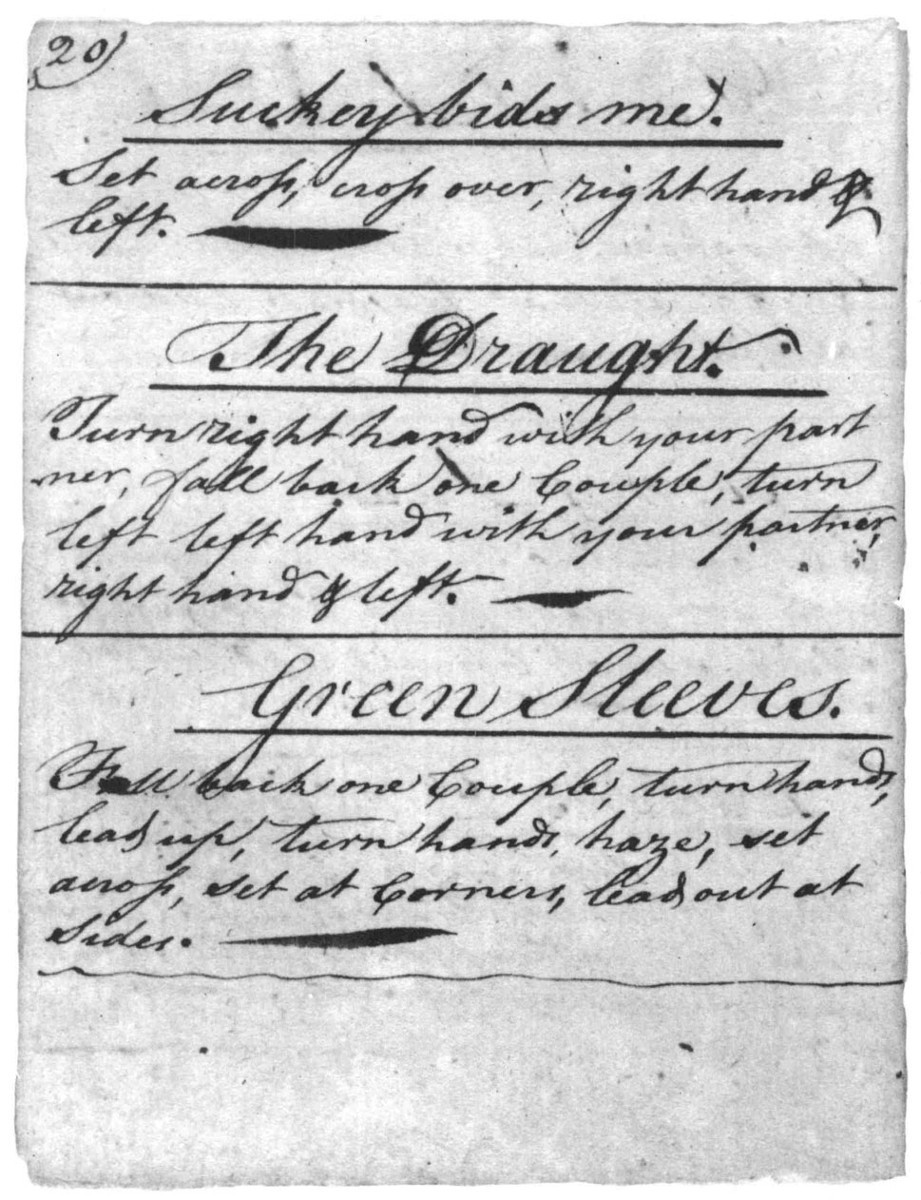 20)
Suckey bids me.
Set across, cross over, right hand &
left.
The Draught.
Turn right hand with your part
ner, fall back one Couple, turn
left left hand with your partner,
right hand & left.
Green Sleeves.
Fall back one Couple, turn hands,
lead up, turn hands, haze, set
across, set at Corners, lead out at
sides.